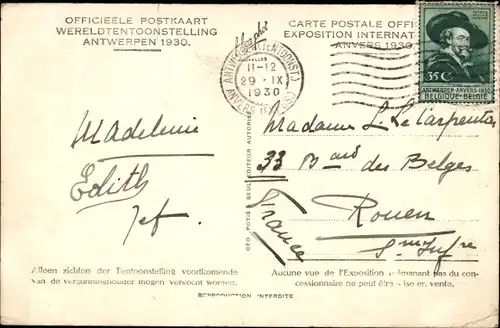 OFFICIEELE POSTKAART
WERELDTENTOONSTELLING
ANTWERPEN 1930.
CARTE POSTALE OFFI
EXPOSITION INTERNAT
ANVERS 1930
11-12
29 · IX
1930
35 C
ANTWERPEN-ANVERS-1930
BELGIQUE-BELGIË
Madeleine
Edith
Jef.
Madame L. Le Carpentier
33 Bard des Belges
Rouen
Sne Infre
France
GEO. POTIÉ BEUL EDITEUR AUTORISÉ
Alleen zichten der Tentoonstelling voortkomende
van de vergunninghouder mogen verkocht worden.
Aucune vue de l'Exposition émanant pas du con-
cessionnaire ne peut être ise en vente.
REPRODUCTION INTERDITE